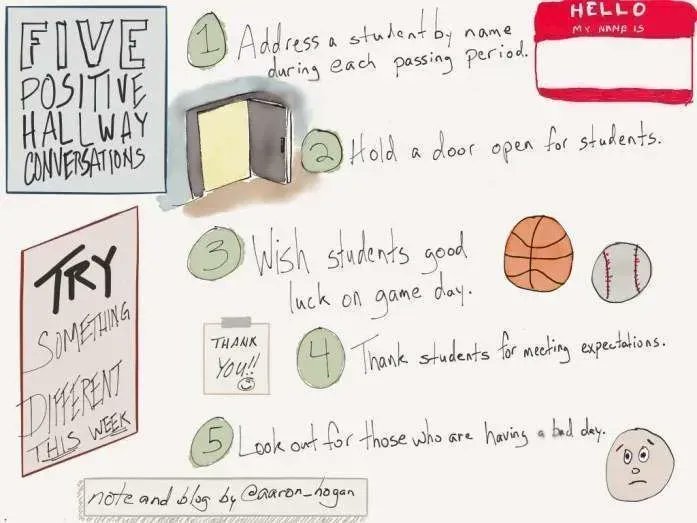 FIVE
POSITIVE
HALLWAY
CONVERSATIONS
1 Address a student by name
during each passing period.
HELLO
MY NAME IS
2 Hold a door open for students.
3 Wish students good
luck on game day.
TRY
SOMETHING
DIFFERENT
THIS WEEK
THANK
YOU!!
4 Thank students for meeting expectations.
5 Look out for those who are having a bad day.
note and blog by @aaron_hogan